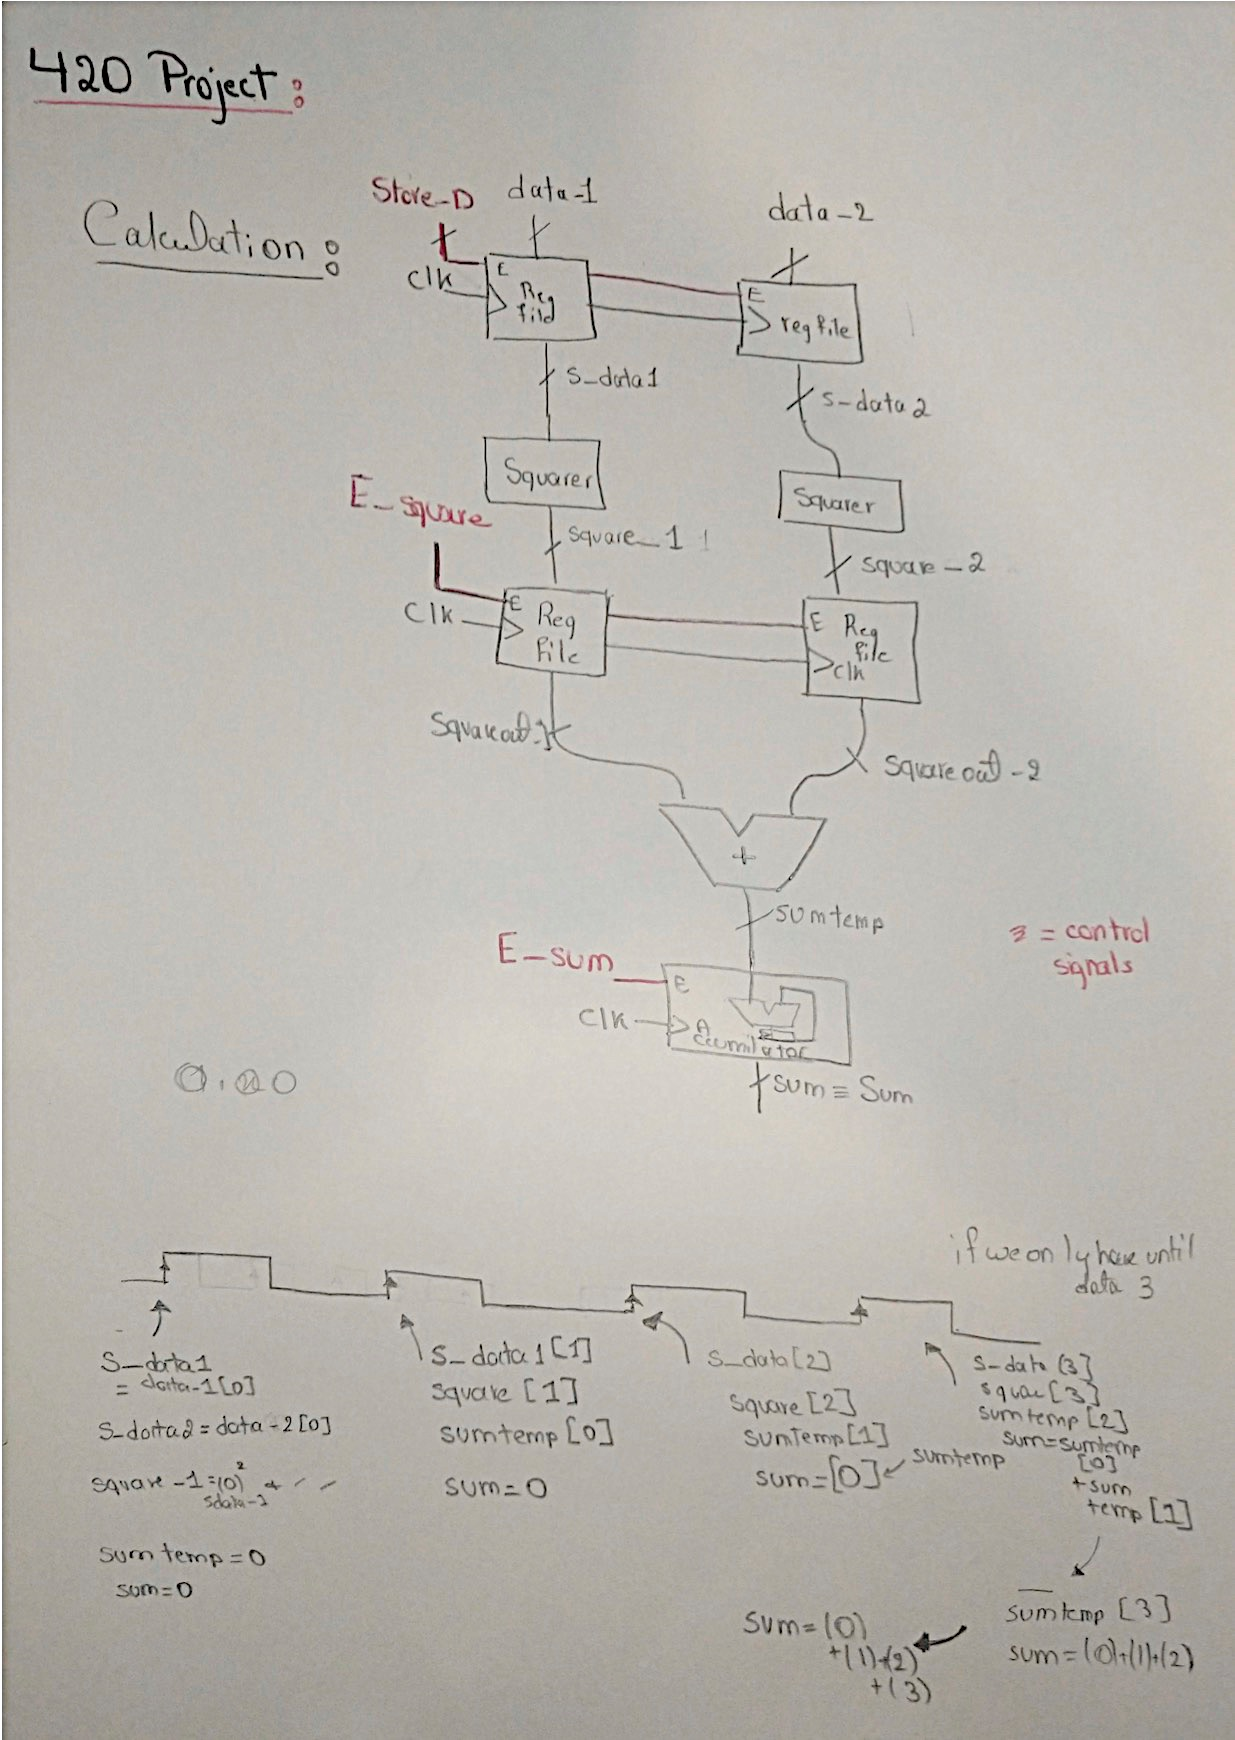 420 Project:
Calculation:
Store-D
data-1
data-2
Clk
E
Reg
file
E
reg file
S-data1
S-data2
Squarer
Squarer
E-square
square-1
square-2
Clk
E
Reg
file
E
Reg
file
clk
Squareout-1
Squareout-2
+
sumtemp
= control
signals
E-sum
E
Clk
Accumilator
sum ≡ Sum
if we only have until
data 3
S-data1
= data-1[0]
S-data2 = data-2[0]
square-1 = (0)²
sdata-1
sumtemp = 0
sum = 0
S-data1[1]
square [1]
sumtemp [0]
sum = 0
S-data[2]
square [2]
sumTemp[1]
sum = [0]
sumtemp
S-data (3]
squar[3]
sumtemp [2]
sum = sumtemp
[0]
+ sum
temp [1]
sumtemp [3]
sum = (0)+(1)+(2)
sum = (0)
+(1)+(2)
+(3)